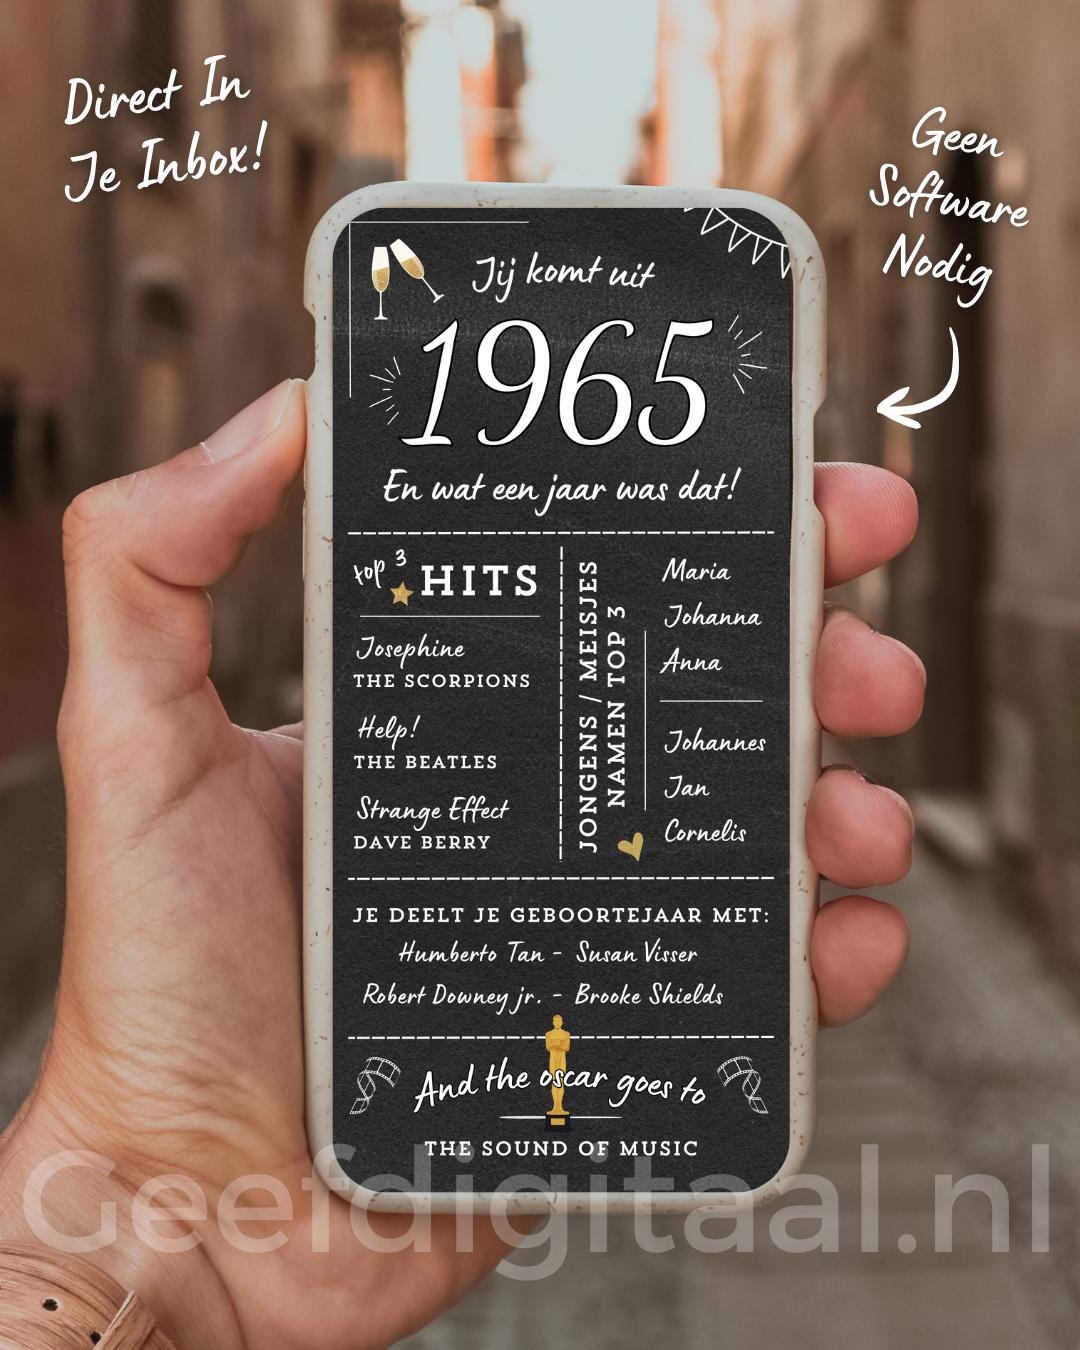 Direct In
Je Inbox!
Geen
Software
Nodig
Jij komt uit
1965
En wat een jaar was dat!
top 3
HITS
Josephine
THE SCORPIONS
Help!
THE BEATLES
Strange Effect
DAVE BERRY
JONGENS / MEISJES
NAMEN TOP 3
Maria
Johanna
Anna
Johannes
Jan
Cornelis
JE DEELT JE GEBOORTEJAAR MET:
Humberto Tan - Susan Visser
Robert Downey jr. - Brooke Shields
And the oscar goes to
THE SOUND OF MUSIC
Geefdigitaal.nl